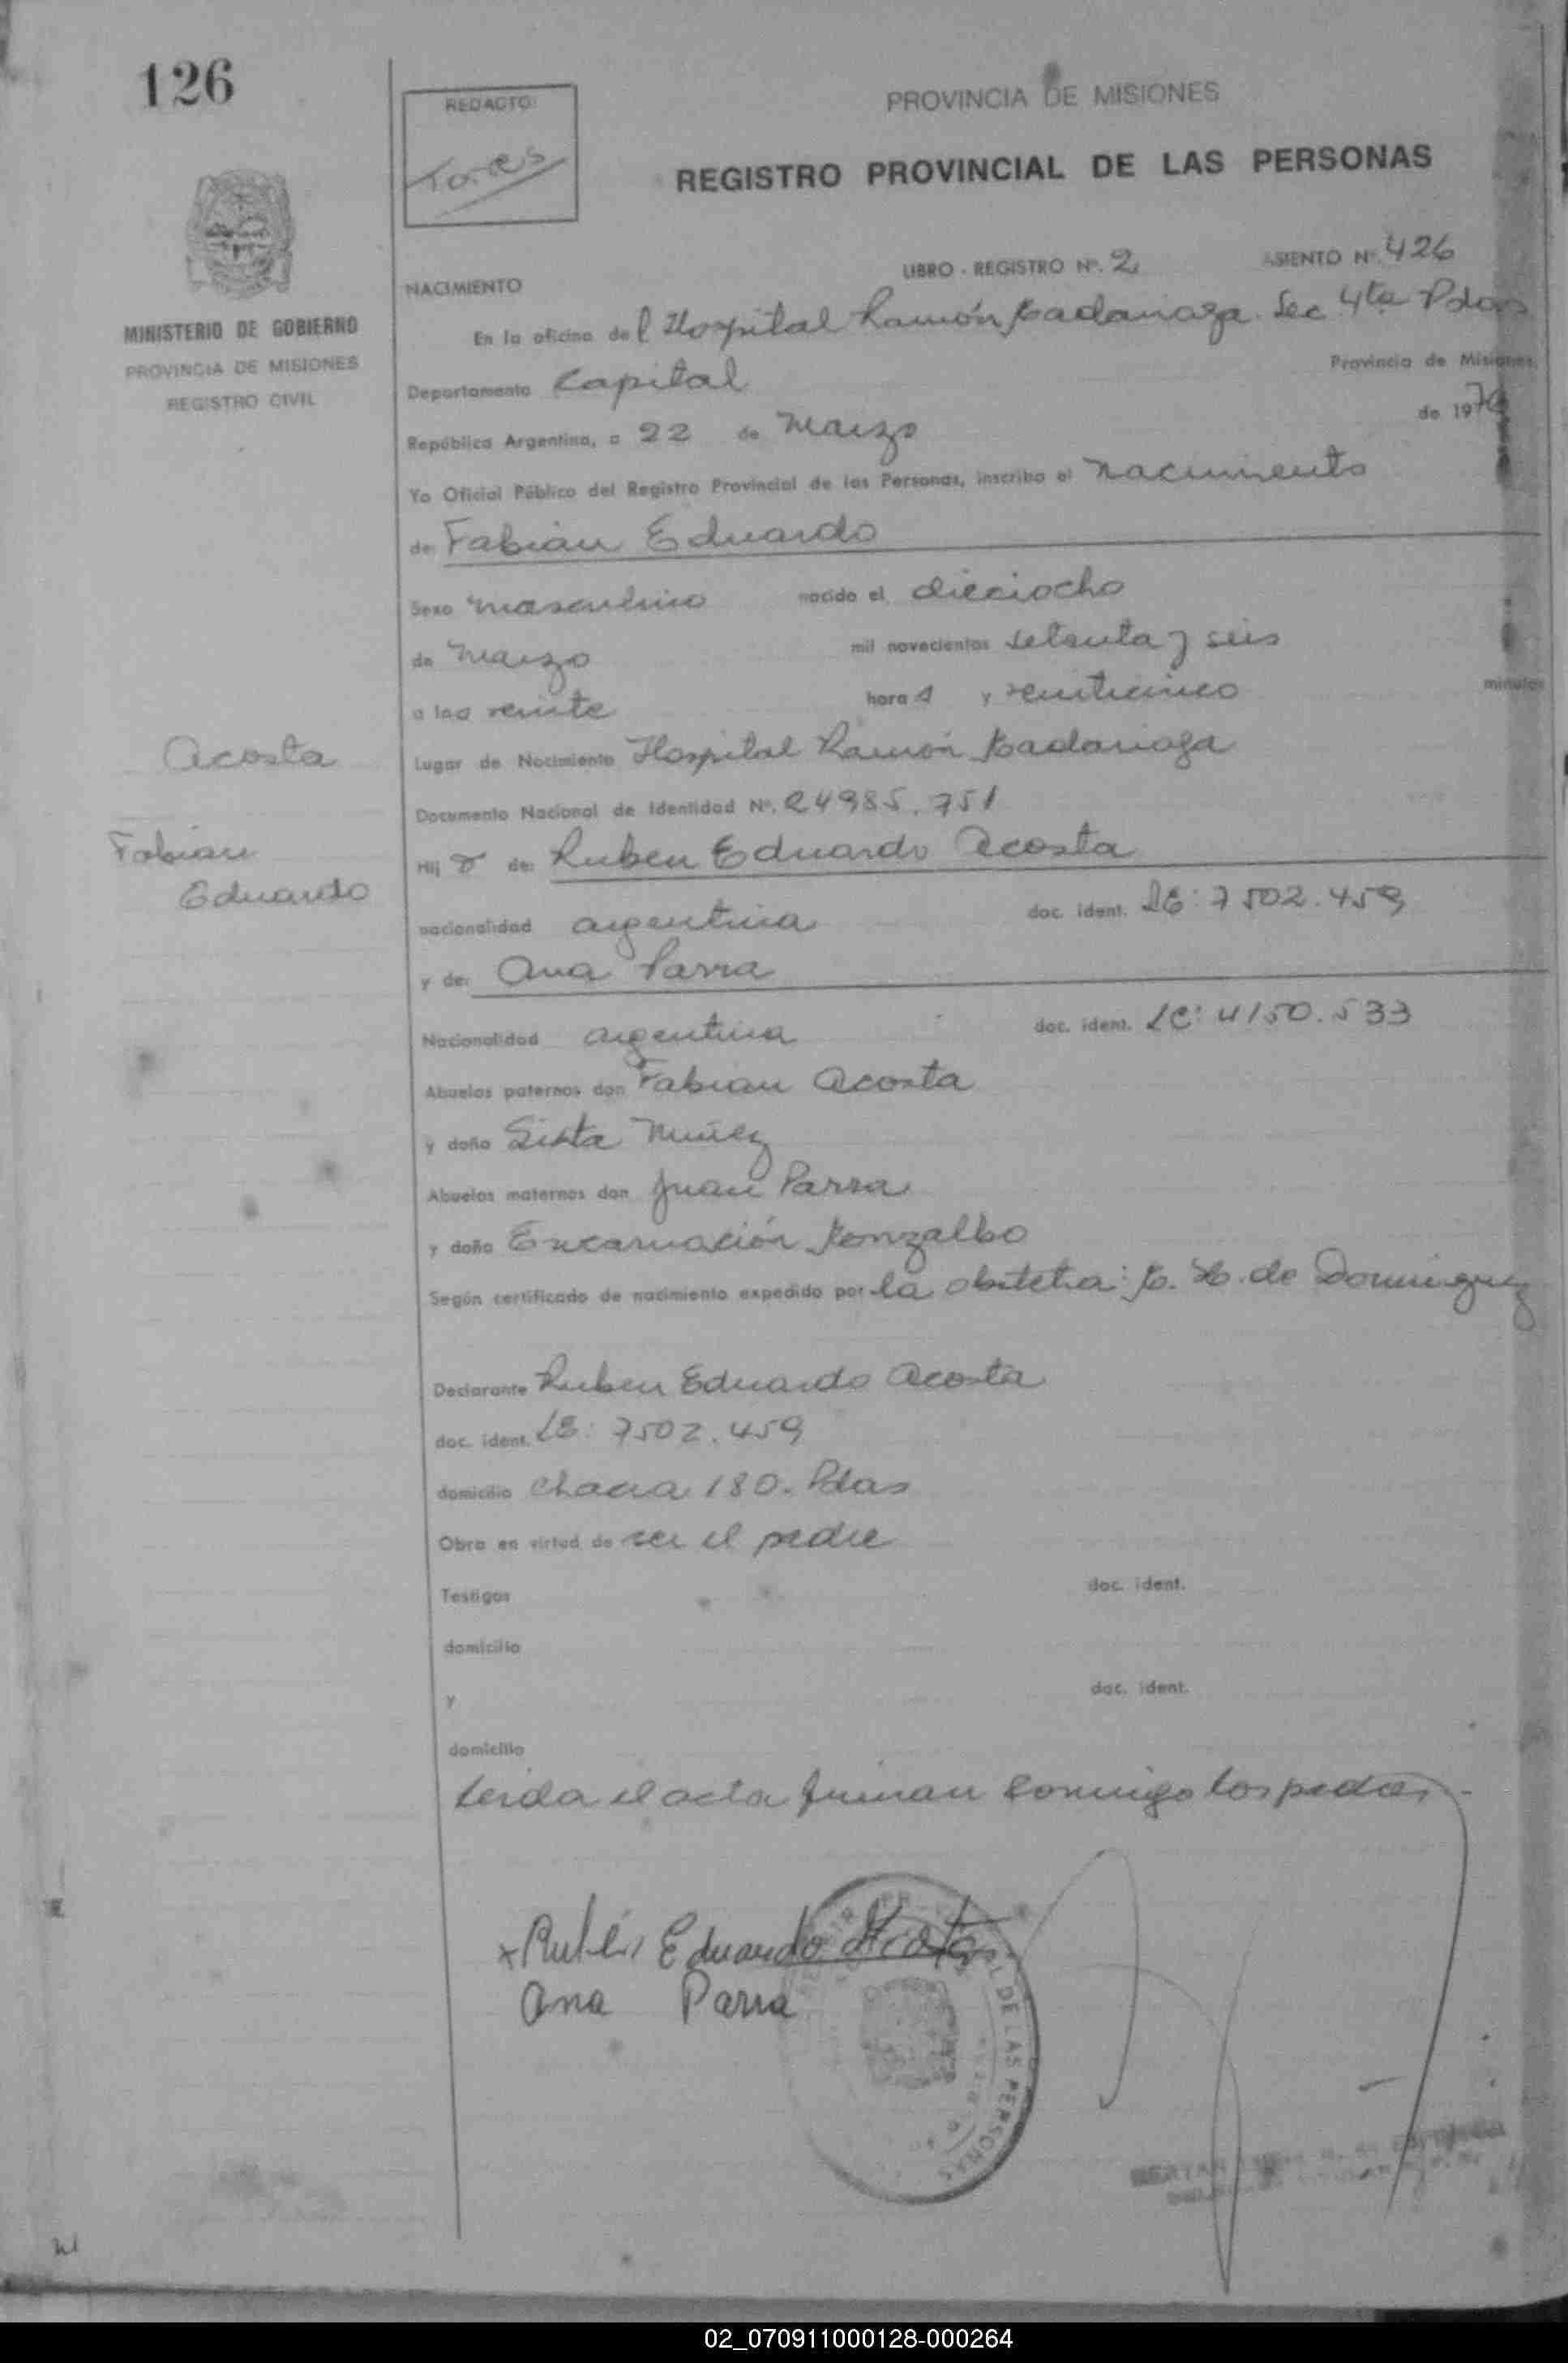 126
REDACTO:
Torres
PROVINCIA DE MISIONES
REGISTRO PROVINCIAL DE LAS PERSONAS
MINISTERIO DE GOBIERNO
PROVINCIA DE MISIONES
REGISTRO CIVIL
NACIMIENTO LIBRO - REGISTRO Nº. 2 ASIENTO Nº. 426
En la oficina del Hospital Ramón Madariaga Sec 4ta Pdas
Departamento Capital Provincia de Misiones,
República Argentina, a 22 de Marzo de 1976
Yo Oficial Público del Registro Provincial de las Personas, inscribo el nacimiento
de: Fabián Eduardo
Sexo masculino nacido el dieciocho
de Marzo mil novecientos setenta y seis
a las veinte horas y veinticinco minutos
Lugar de Nacimiento Hospital Ramón Madariaga
Documento Nacional de Identidad Nº. 24985.751
Acosta
Fabian
Eduardo
Hijo de: Ruben Eduardo Acosta
nacionalidad argentina doc. ident. LE: 7502.459
y de: Ana Parra
Nacionalidad argentina doc. ident. LC: 4150.533
Abuelos paternos don Fabian Acosta
y doña Sixta Nuñez
Abuelos maternos don Juan Parra
y doña Encarnación Gonzalbo
Según certificado de nacimiento expedido por la obstetra: de Dominguez
Declarante Ruben Eduardo Acosta
doc. ident. LE: 7502.459
domicilio Chacra 180. Pdas
Obra en virtud de ser el padre
Testigos doc. ident.
domicilio
y doc. ident.
domicilio
Leida el acta firman conmigo los padres.-
x Rubén Eduardo Acosta
Ana Parra
DE LAS PERSONAS
02_070911000128-000264